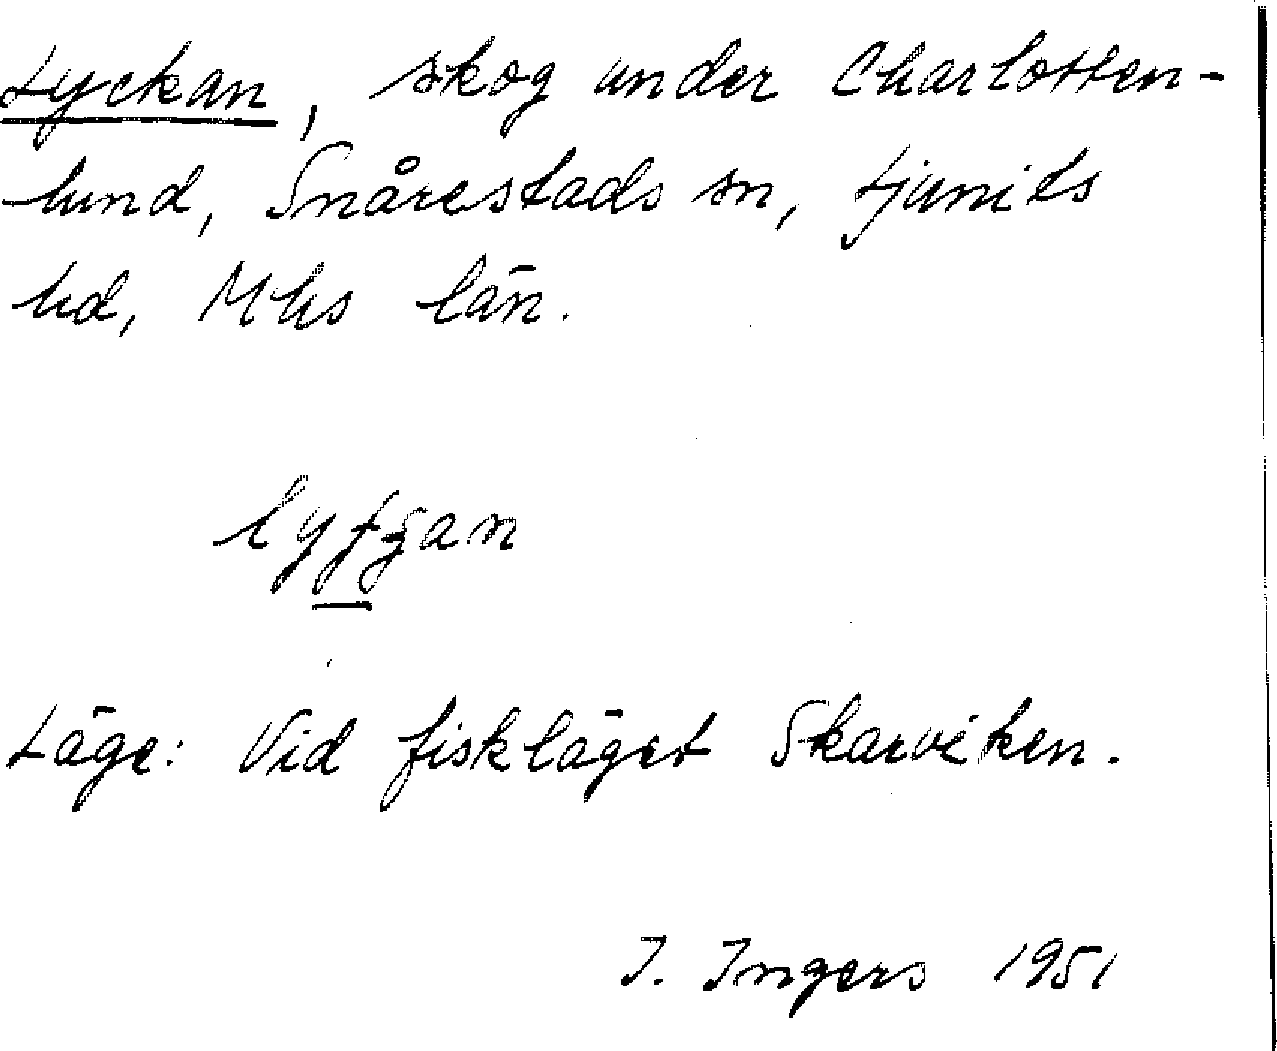 Lyckan, skog under Charlotten-
lund, Snårestads sn, Ljunits
hd, Mhs län.
Läge: Vid fiskläget Skarviken.
I. Ingers 1951